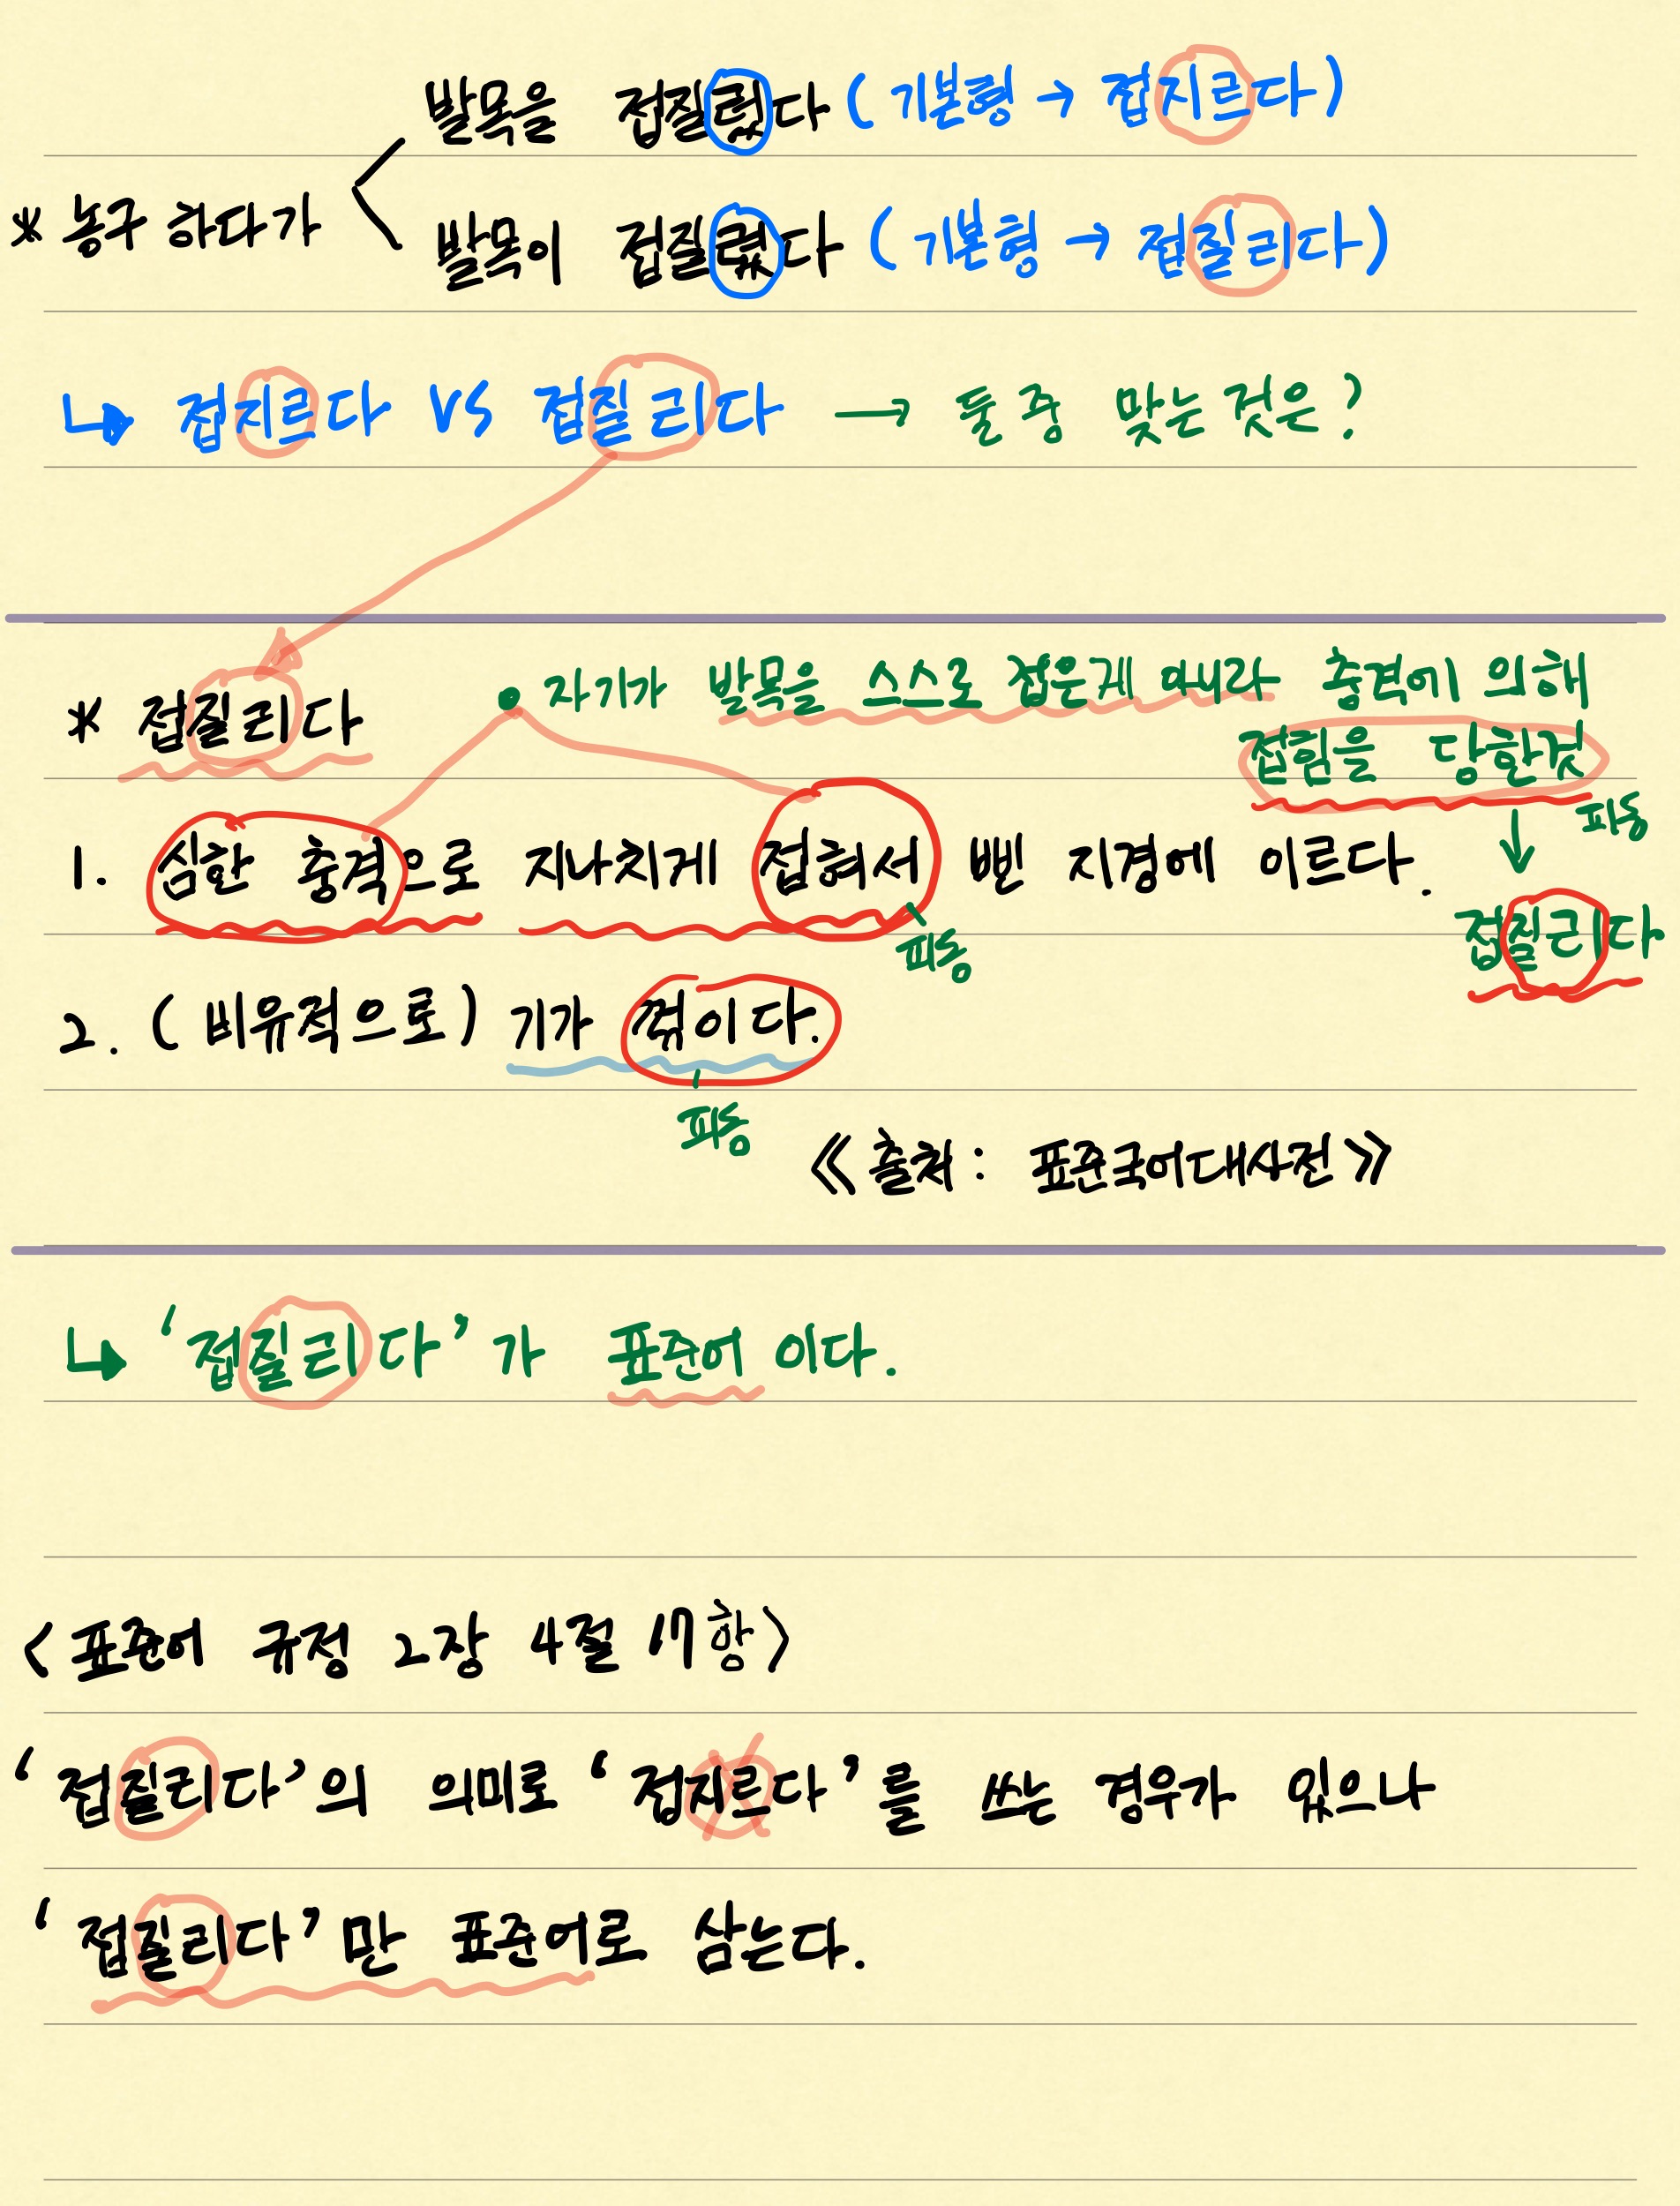 발목을 접질렀다 (기본형 → 접지르다)
* 농구 하다가
발목이 접질렸다 (기본형 → 접질리다)
↳ 접지르다 VS 접질리다 → 둘 중 맞는 것은?
* 접질리다
• 자기가 발목을 스스로 접은게 아니라 충격에 의해
접힘을 당한것
피동
↓
접질리다
1. 심한 충격으로 지나치게 접혀서 삔 지경에 이르다.
피동
2. (비유적으로) 기가 꺾이다.
피동
《출처 : 표준국어대사전》
↳ ‘접질리다’가 표준어 이다.
<표준어 규정 2장 4절 17항>
‘접질리다’의 의미로 ‘접지르다’를 쓰는 경우가 있으나
‘접질리다’만 표준어로 삼는다.